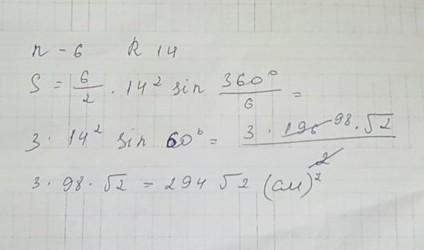 n - 6 R 14
S = 6/2 · 14² sin 360°/6 =
3 · 14² sin 60° = 3 · 196 98 · √2 / 2
3 · 98 · √2 = 294 √2 (см)²